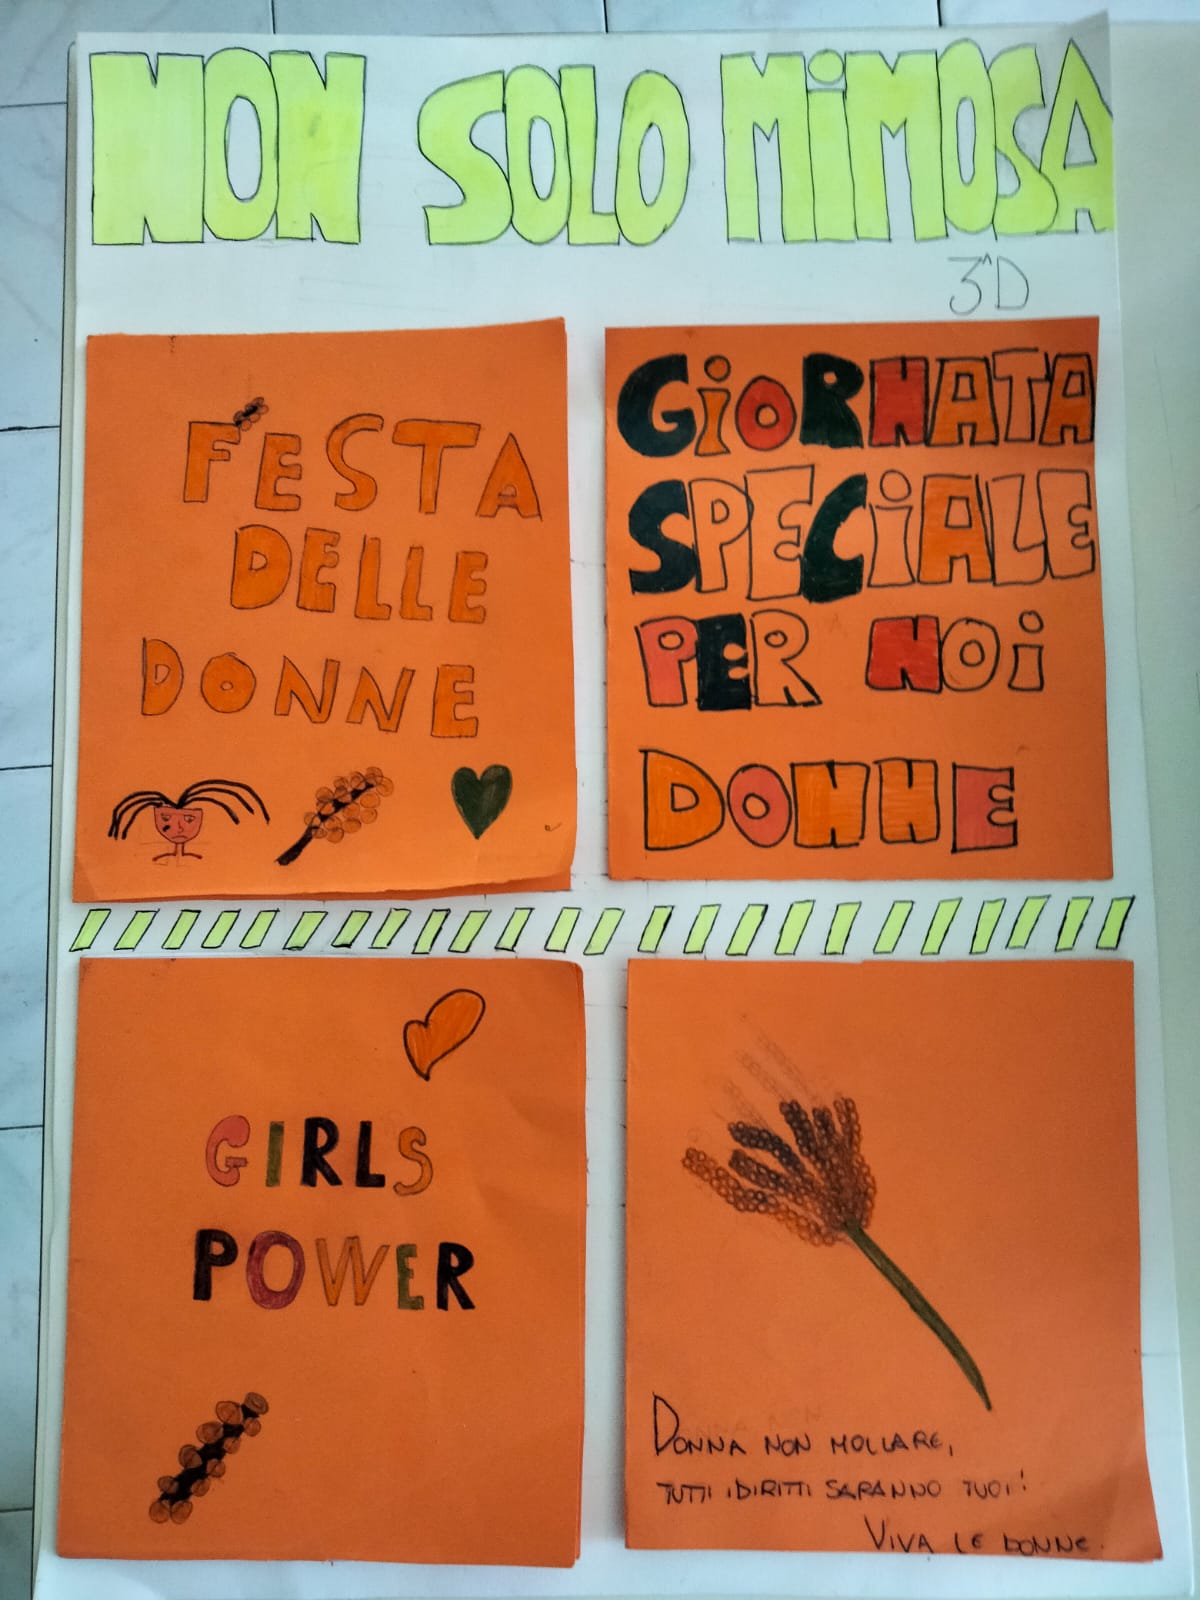 NON SOLO MiMOSA
3^D
FESTA
DELLE
DONNE
GiORNATA
SPECiALE
PER NOi
DONNE
GIRLS
POWER
DONNA NON MOLLARE,
TUTTI I DIRITTI SARANNO TUOI!
VIVA LE DONNE.